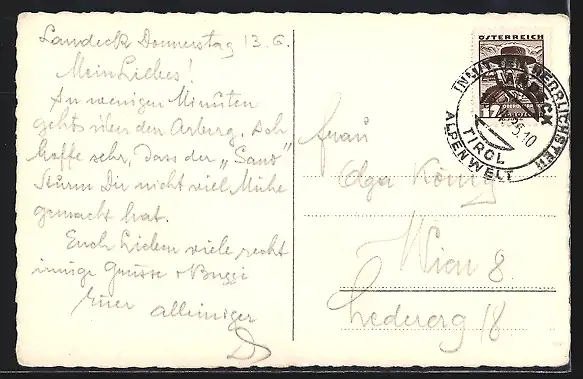 Landeck Donnerstag 13.6.
Mein Liebes!
In wenigen Minuten
gehts über den Arlberg. Ich
hoffe sehr, dass der „Sand"
Sturm Dir nicht viel Mühe
gemacht hat.
Euch Lieben viele recht
innige Grüsse + Bussi
Euer alleiniger
ÖSTERREICH
INMITTEN HERRLICHSTER
ALPENWELT
LANDECK
TIROL
Frau
Olga König
Wien 8.
Ledererg 18